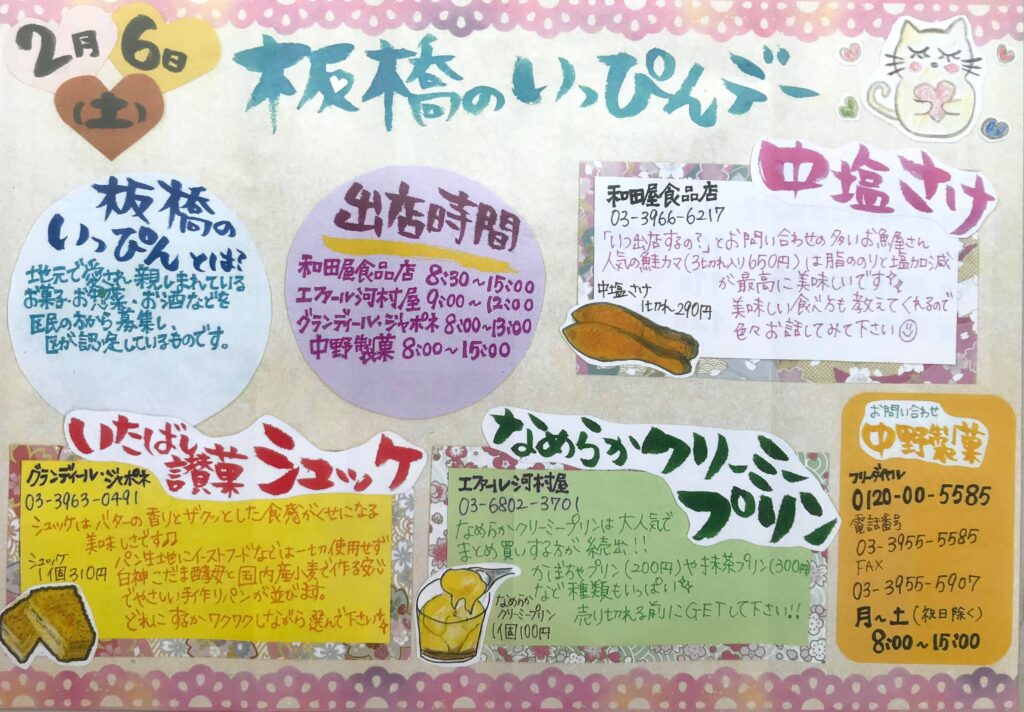 2月6日
(土)
板橋のいっぴんデー
板橋の
いっぴんとは?
地元で愛され、親しまれている
お菓子、お惣菜、お酒などを
区民の方から募集し、
区が認定しているものです。
出店時間
和田屋食品店 8:30~15:00
エファール河村屋 9:00~12:00
グランディール・ジャポネ 8:00~13:00
中野製菓 8:00~15:00
中塩さけ
和田屋食品店
03-3966-6217
「いつ出店するの?」とお問い合わせの多いお魚屋さん
人気の鮭カマ(3切れ入り650円)は脂ののりと塩加減
が最高に美味しいです
美味しい食べ方も教えてくれるので
色々お話してみて下さい
中塩さけ
1切れ290円
いたばし
讃菓 シュッケ
グランディール・ジャポネ
03-3963-0491
シュッケはバターの香りとザクッとした食感がくせになる
美味しさです♪
パン生地にイーストフードなどは一切使用せず
白神こだま酵母と国内産小麦で作る安心
でやさしい手作りパンが並びます。
どれにするかワクワクしながら選んで下さい
シュッケ
1個310円
なめらかクリーミー
プリン
エファール河村屋
03-6802-3701
なめらかクリーミープリンは大人気で
まとめ買いする方が続出!!
かぼちゃプリン(200円)や抹茶プリン(300円)
など種類もいっぱい
売り切れる前にGETして下さい!!
なめらか
クリーミープリン
1個100円
お問い合わせ
中野製菓
フリーダイヤル
0120-00-5585
電話番号
03-3955-5585
FAX
03-3955-5907
月~土(祝日除く)
8:00~15:00